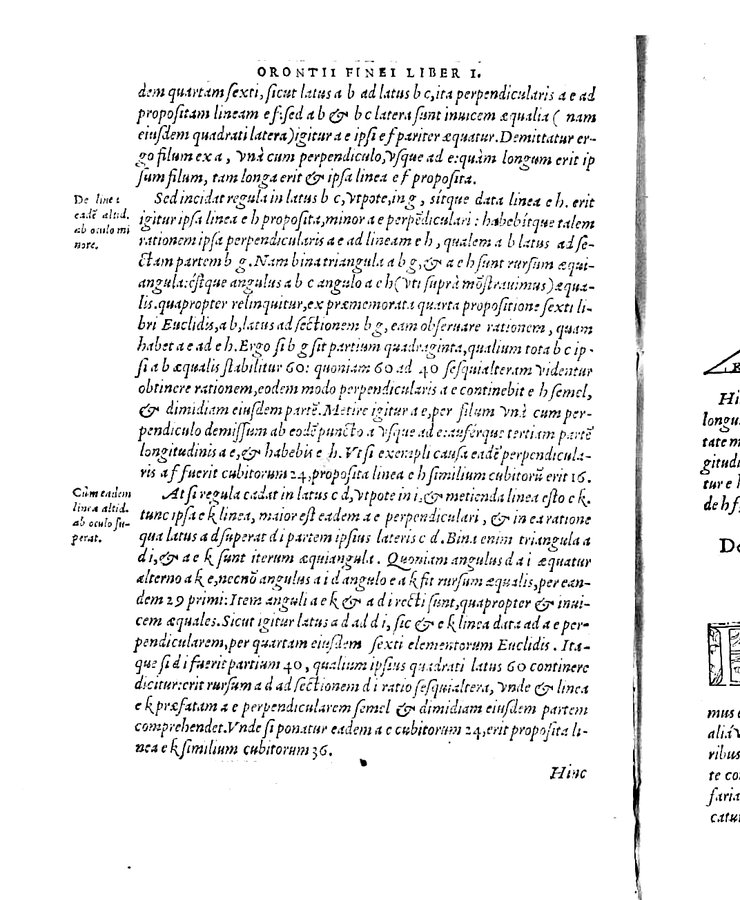 ORONTII FINEI LIBER I.
dem quartam sexti, sicut latus a b ad latus b c, ita perpendicularis a e ad
propositam lineam e f: sed a b & b c latera sunt inuicem æqualia ( nam
eiusdem quadrati latera) igitur a e ipsi e f pariter æquatur. Demittatur er-
go filum ex a, vnà cum perpendiculo, vsque ad e: quàm longum erit ip
sum filum, tam longa erit & ipsa linea e f proposita.
De linea
eadē altid.
ab oculo mi
nore.
Sed incidat regula in latus b c, vtpote, in g, sitque data linea e h. erit
igitur ipsa linea e h proposita, minor a e perpēdiculari: habebitque talem
rationem ipsa perpendicularis a e ad lineam e h, qualem a b latus ad se-
ctam partem b g. Nam bina triangula a b g, & a e h sunt rursum æqui-
angula: éstque angulus a b c angulo a e h (vti suprà mōstrauimus) æqua-
lis. quapropter relinquitur, ex præmemorata quarta propositione sexti li-
bri Euclidis, a b, latus ad sectionem b g, eam obseruare rationem, quam
habet a e ad e h. Ergo si b g sit partium quadraginta, qualium tota b c ip-
si a b æqualis stabilitur 60: quoniam 60 ad 40 sesquialteram videntur
obtinere rationem, eodem modo perpendicularis a e continebit e h semel,
& dimidiam eiusdem partē. Metire igitur a e, per filum vnà cum per-
pendiculo demissum ab eodē puncto a vsque ad e: auférque tertiam partē
longitudinis a e, & habebis e h. Vt si exempli causa eadē perpendicula-
ris a f fuerit cubitorum 24, proposita linea e h similium cubitorū erit 16.
Cùm eadem
linea altid.
ab oculo su-
perat.
At si regula cadat in latus c d, vtpote in i, & metienda linea esto e k.
tunc ipsa e k linea, maior est eadem a e perpendiculari, & in ea ratione
qua latus a d superat d i partem ipsius lateris c d. Bina enim triangula a
d i, & a e k sunt iterum æquiangula. Quoniam angulus d a i æquatur
alterno a k e, necnō angulus a i d angulo e a k fit rursum æqualis, per ean-
dem 29 primi: Item anguli a e k & a d i recti sunt, quapropter & inui-
cem æquales. Sicut igitur latus a d ad d i, sic & e k linea data ad a e per-
pendicularem, per quartam eiusdem sexti elementorum Euclidis. Ita-
que si d i fuerit partium 40, qualium ipsius quadrati latus 60 continere
dicitur: erit rursum a d ad sectionem d i ratio sesquialtera, vnde & linea
e k præfatam a e perpendicularem semel & dimidiam eiusdem partem
comprehendet. Vnde si ponatur eadem a e cubitorum 24, erit proposita li-
nea e k similium cubitorum 36.
Hinc
Hi
longu
tate m
gitudi
ture h
de h f
De
mus e
aliá v
ribus
te co
faria
catur